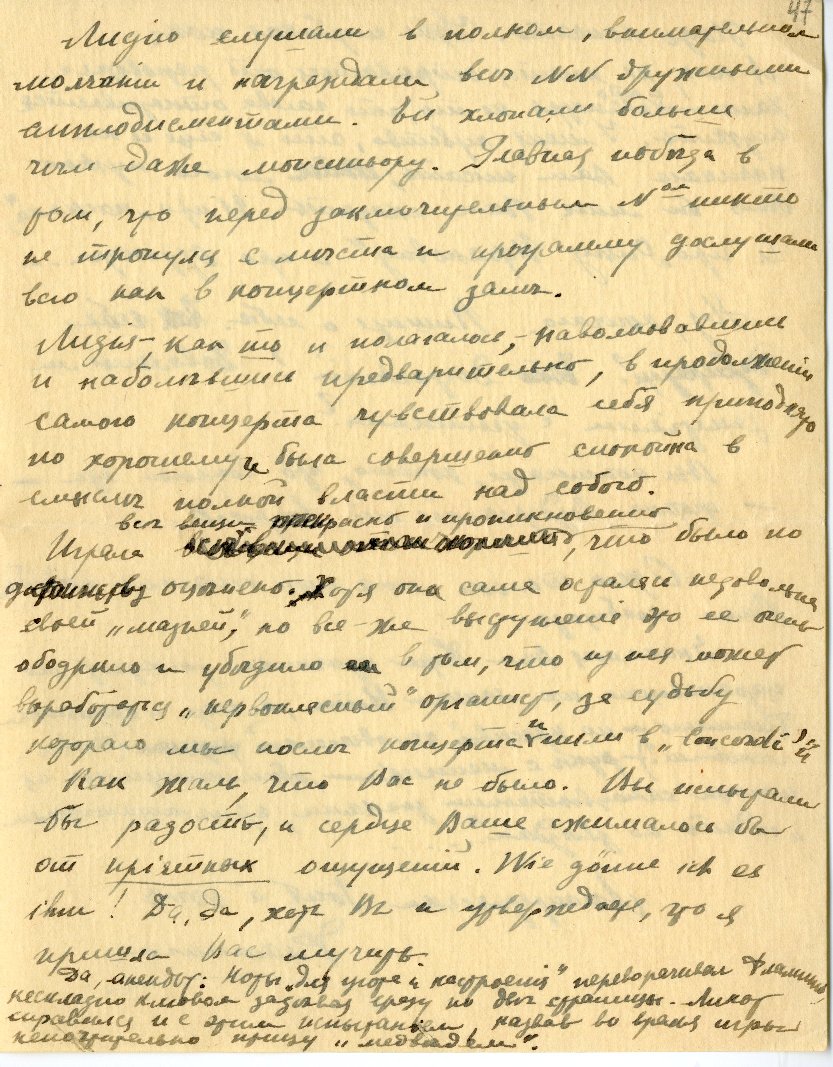 47
Лидію слушали в полном, внимательном
молчаніи и награждали всѣ NN дружными
апплодисментами. Ей хлопали больше
чѣм даже монсиньору. Главная побѣда в
том, что перед заключительным N ом никто
не тронулся с мѣста и программу дослушали
всю как в концертном залѣ.
Лидія, как то и полагалось, наволновавшись
и наболѣвшись предварительно, в продолженіи
самого концерта чувствовала себя приподнято
по хорошему и была совершенно спокойна в
смыслѣ полной власти над собою.
всѣ вещи прекрасно и проникновенно
Играла, что было по
достоинству оцѣнено. Хотя она сама осталась недовольна
своей „мазней", но все-же выступленіе это ее очень
ободрило и убѣдило в том, что из нея может
выработаться „первоклассный" органист, за судьбу
котораго мы послѣ концерта и пили в „Concordi'и"
Как жаль, что Вас не было. Вы испытали
бы радость, и сердце Ваше сжималось бы
от пріятных ощущеній. Wie gönne ich es
ihm! Да, да, хоть Вы и утверждаете, что я
пришла Вас мучить.
Да, анекдот: Ноты „для уюта и настроенія" переворачивал Фламинго,
нескладно клювом задѣвая сразу по двѣ страницы.
справился и с этим испытаніем, назвав во время игры
непочтительно птицу „медвѣдем".